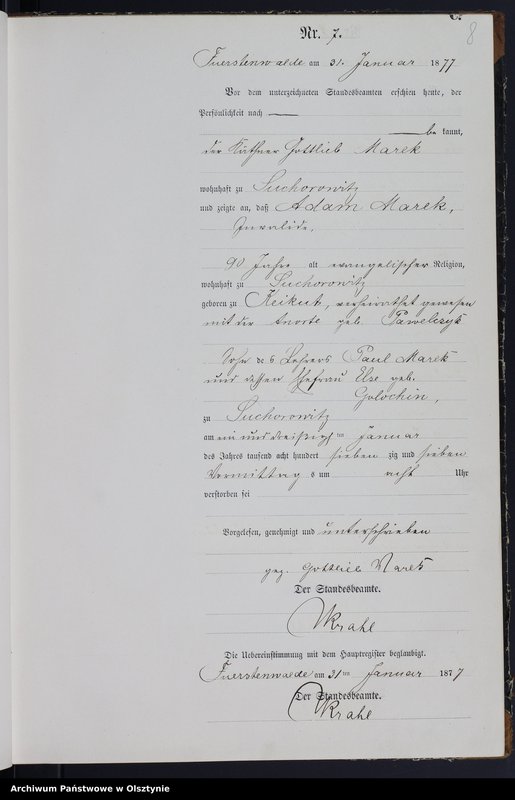 C.
8
Nr. 7.
Fuerstenwalde am 31. Januar 1877
Vor dem unterzeichneten Standesbeamten erschien heute, der
Persönlichkeit nach
be kannt,
der Käthner Gottlieb Marek
wohnhaft zu Suchorowitz
und zeigte an, daß Adam Marek,
Invalide,
90 Jahre alt evangelischer Religion,
wohnhaft zu Suchorowitz
geboren zu Keikut, verheirathet gewesen
mit der geb. Pawelczyk
Sohn des Lehrers Paul Marek
und dessen Ehefrau Else geb.
Golochin,
zu Suchorowitz
am ein und dreißigsten Januar
des Jahres tausend acht hundert sieben zig und sieben
Vormittags um acht Uhr
verstorben sei
Vorgelesen, genehmigt und unterschrieben
gez. Gottlieb Marek
Der Standesbeamte.
Krahl
Die Uebereinstimmung mit dem Hauptregister beglaubigt.
Fuerstenwalde am 31ten Januar 1877
Der Standesbeamte.
Krahl
Archiwum Państwowe w Olsztynie